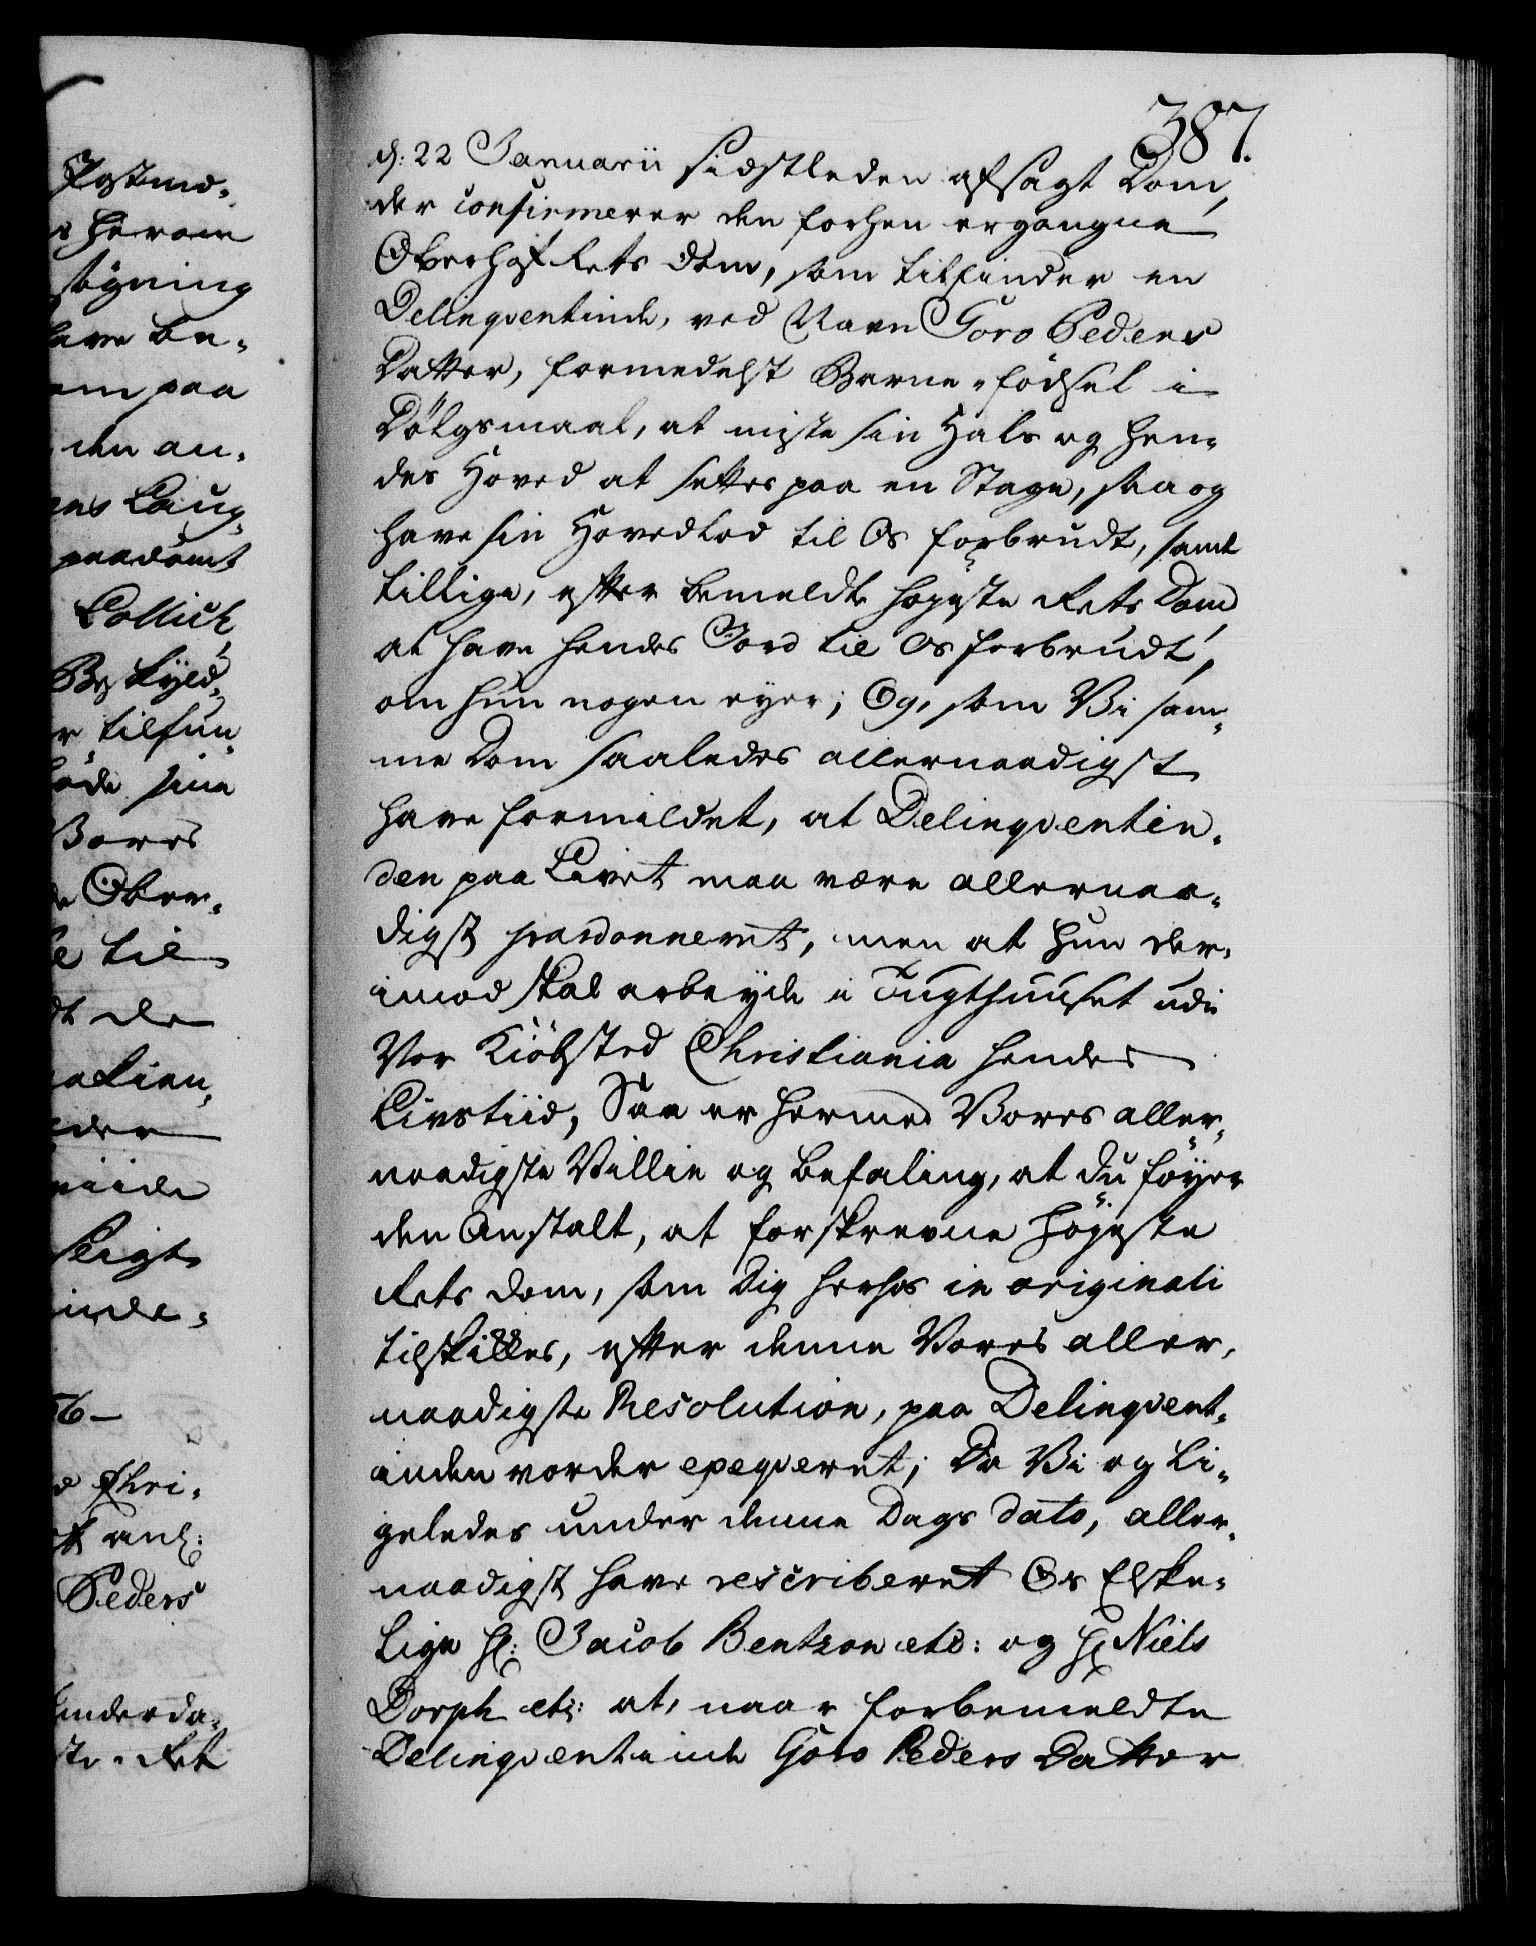 Postme-
s herom
søgning
have be-
em paa
den an-
ens Laug-
paadømt
Collich
Beskyld-
r tilfun-
søde sine
Vores
de Ober-
e til
dt de
den
inde-
56
Chri-
Peders
Kinderda-
ste-Ret
387.
d: 22 Januarii sidstleden afsagt Dom,
der confirmerer den forhen ergangne
OberhofRets Dom, som tilfinder en
Delinqventinde, ved Navn Goro Peders
Datter, formedelst Barne-fødsel i
Dölgsmaal, at miste sin Hals og hen-
des Hoved at settes paa en Stage, saa og
have sin Hovedlod til Os forbrudt, samt
tillige, efter bemeldte høyeste Rets Dom
at have hendes Jord til Os forbrudt,
om hun nogen eyer; Og, som Vi sam-
me Dom saaledes allernaadigst
have formildet, at Delinqventin-
den paa Livet maa være allernaa-
digst pardonneret, men at hun der-
imod skal arbeyde i Tugthuuset udi
Vor Kiöbsted Christiania hendes
Livstiid, Saa er hermed Vores aller-
naadigste Villie og befaling, at du föyer
den Anstalt, at forskrevne Höyeste
Rets Dom, som dig herhos in originali
tilskikkes, efter denne Vores aller-
naadigste Resolution, paa Delinqvent-
inden vorder exeqveret; Da Vi og li-
geledes under denne Dags dato, aller-
naadigst have rescriberet Os Elske-
lige Hr: Jacob Bentzon etc: og Hr Niels
Dorph etc: at, naar forbemeldte
Delinqventinde Goro Peders Datter